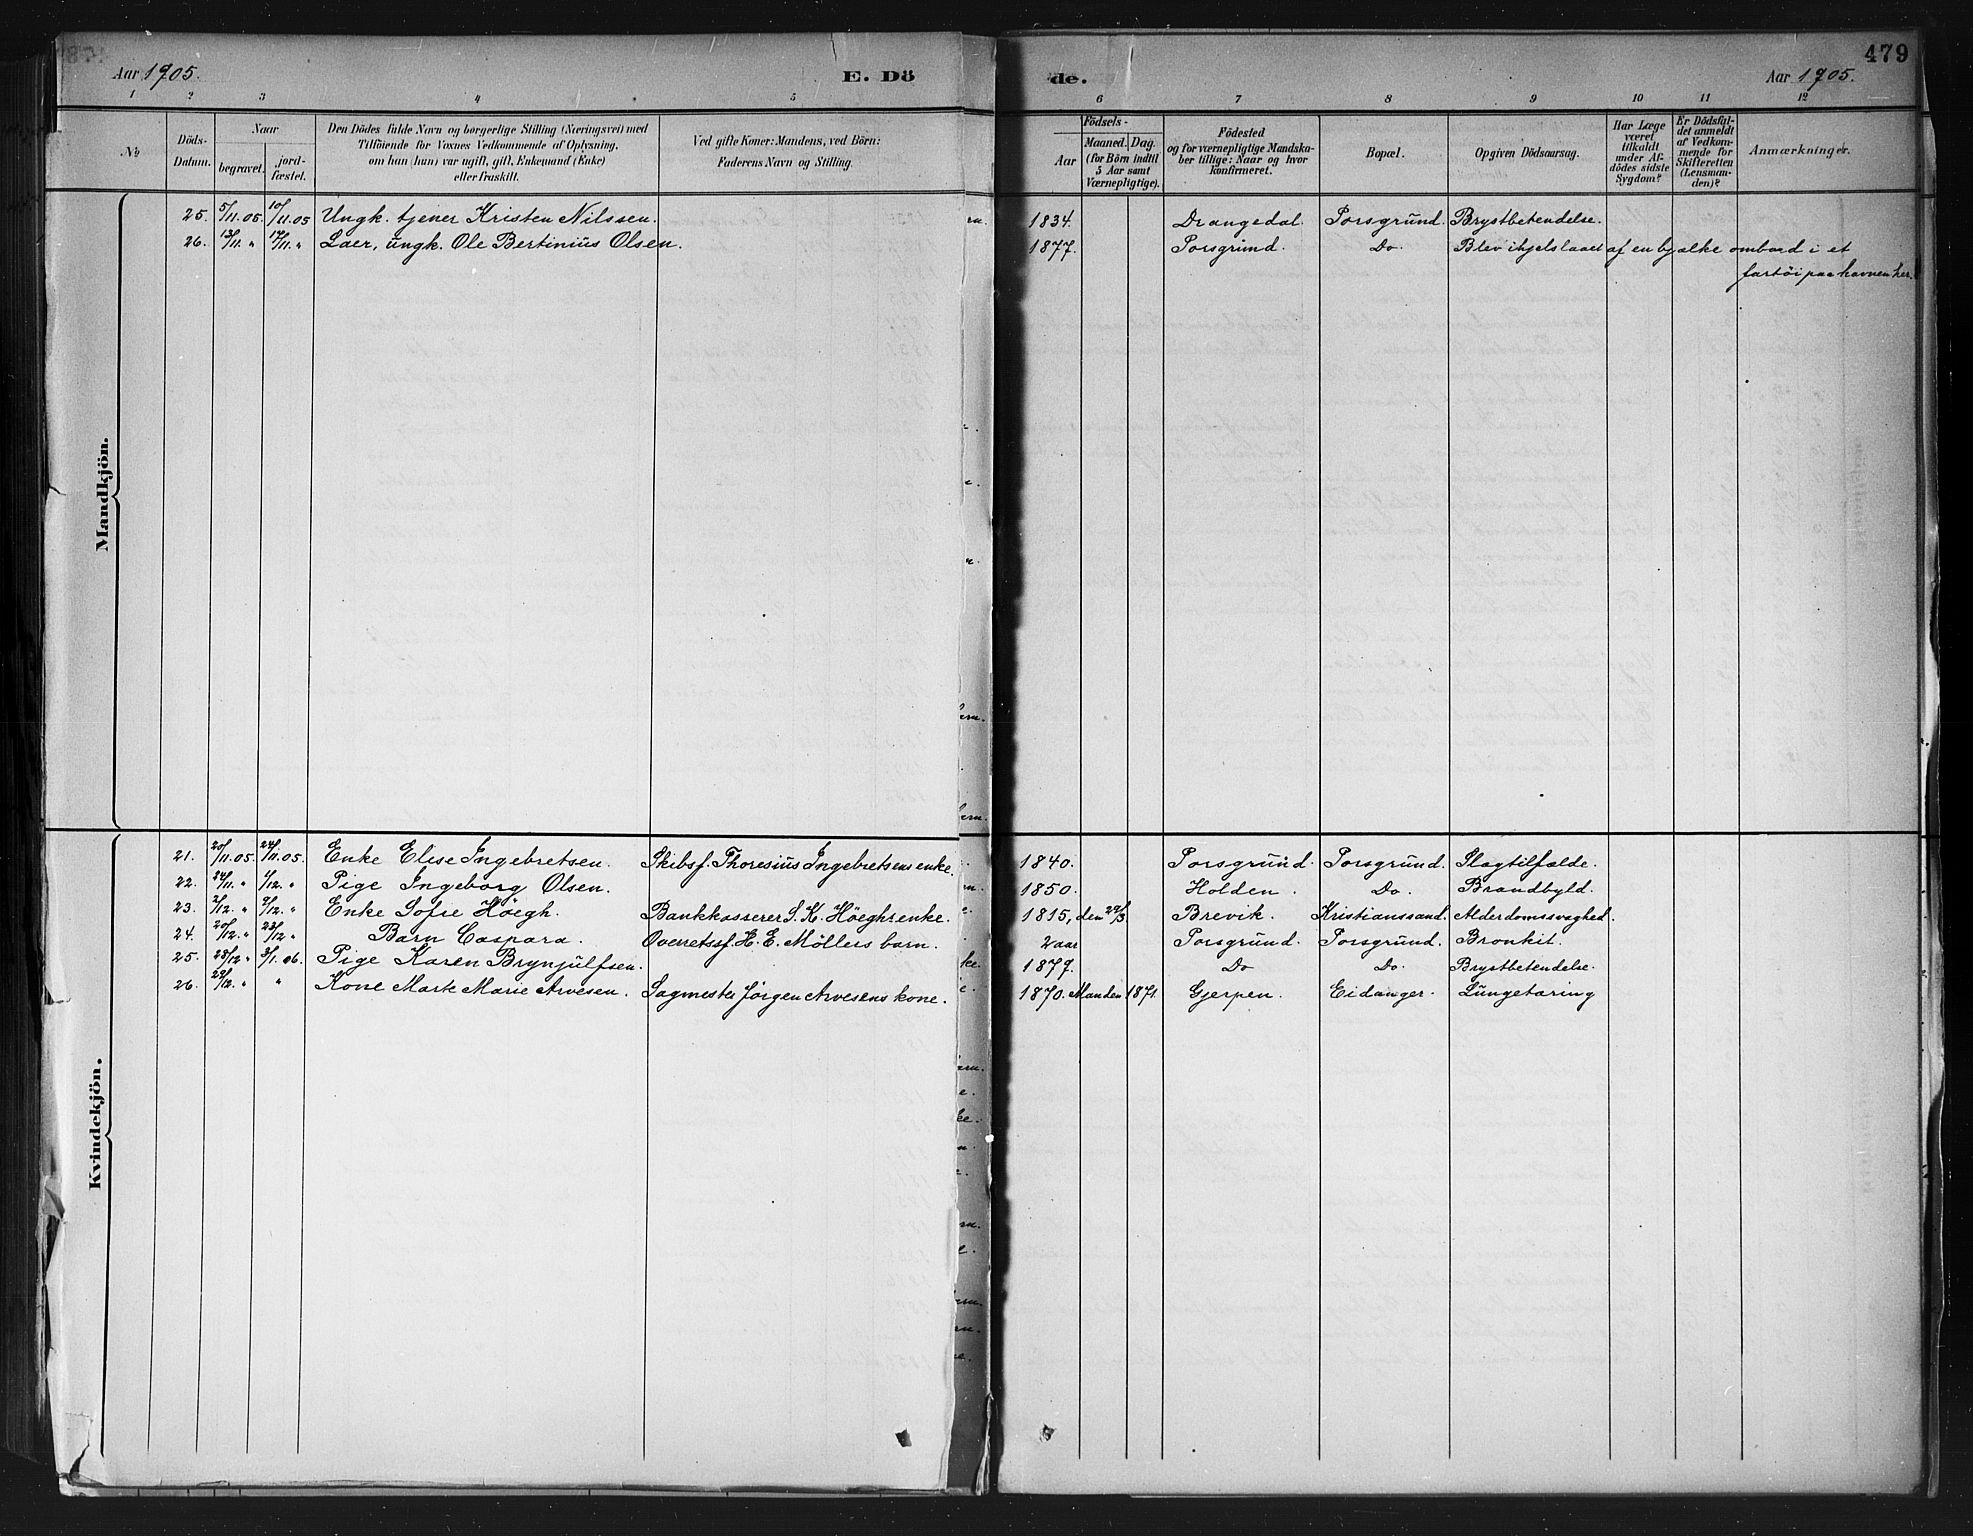 Aar 1905. E. Dö de. Aar 1905. 479
1 2 3 4 5 6 7 8 9 10 11 12
No
Döds-Datum.
Naar
begravet. jordfæstet.
Den Dödes fulde Navn og borgerlige Stilling (Næringsvei) med
Tilföiende for Voxnes Vedkommende af Oplysning,
om han (hun) var ugift, gift, Enkemand (Enke)
eller fraskilt.
Ved gifte Koner: Mandens, ved Börn:
Faderens Navn og Stilling.
Födsels-
Aar
Maaned. Dag.
(for Börn indtil
5 Aar samt
Værnepligtige).
Födested
og for værnepligtige Mandska-
ber tillige: Naar og hvor
konfirmeret.
Bopæl.
Opgiven Dödsaarsag.
Har Læge
været
tilkaldt
under Af-
dödes sidste
Sygdom?
Er Dödsfal-
det anmeldt
af Vedkom-
mende for
Skifteretten
(Lensman-
den)?
Anmærkninger.
Mandkjön.
25. 5/11.05. 10/11.05 Ungk. tjener Kristen Nilssen. 1834. Drangedal. Porsgrund. Brystbetendelse.
26. 13/11. " 17/11. " Laer, ungk. Ole Bertinius Olsen. 1877. Porsgrund. Do. Blev ihjelslaaet af en bjælke ombord i et
fartöi paa havnen her.
Kvindekjön.
21. 20/11.05. 24/11.05. Enke Elise Ingebretsen. Skibsf. Thoresius Ingebretsens enke. 1840. Porsgrund. Porsgrund. Slagtilfælde.
22. 24/11. " 1/12. " Pige Ingeborg Olsen. 1850. Holden. Do. Brandbyld.
23. 2/12. " 9/12. " Enke Sofie Höegh. Bankkasserer S. K. Höeghs enke. 1815, den 29/3 Brevik. Kristianssand. Alderdomssvaghed.
24. 20/12. " 23/12 " Barn Caspara. Overretssf. H. E. Möllers barn. 2 aar Porsgrund. Porsgrund. Bronkit.
25. 28/12 " 3/1. 06. Pige Karen Brynjulfsen. 1879. Do Do. Brystbetendelse.
26. 29/12. " " Kone Marte Marie Arvesen. Sagmester Jörgen Arvesens kone. 1870. Manden 1871. Gjerpen. Eidanger. Lungetæring